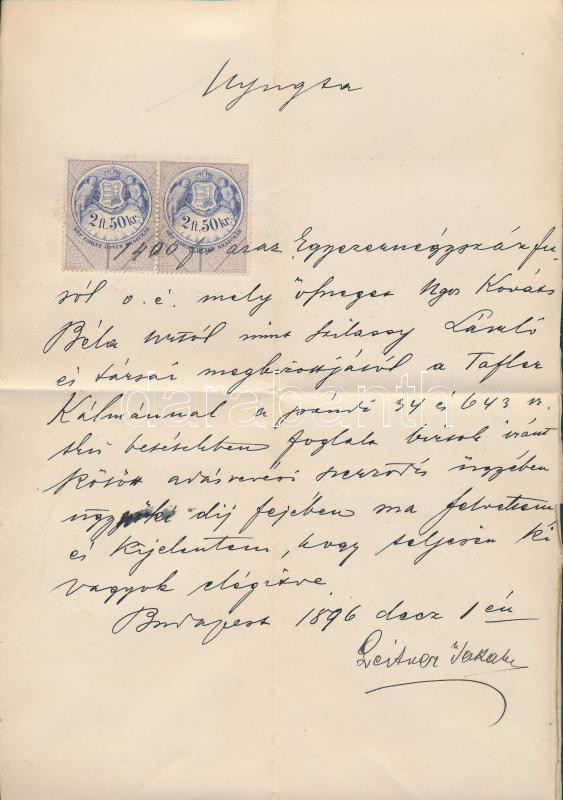 Nyugta
2 ft. 50 kr. 2 ft. 50 kr.
1400 f azaz Egyezernégyszáz fo-
ról o. é. mely összeget Ngos Kováts
Béla úrtól mint Szilassy László
és társai megbizottjától a Tafler
Kálmánnal a 34 és 643
szú betétekben foglalt birtok iránt
kötött adásvevési szerződés ügyében
díj fejében ma felvettem
és kijelentem, hogy teljesen ki
vagyok elégitve
Budapest 1896 decz 1 én
Leitner Jakab
darabanth